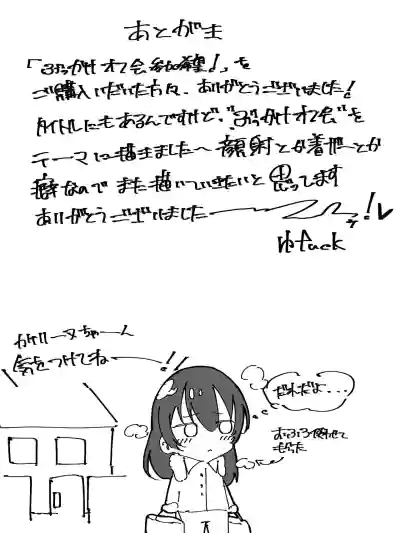 あとがき
「ぶっかけオフ会参加希望！」を
ご購入いただいた方々、ありがとうございました！
タイトルにもあるんですけど、"ぶっかけオフ会"を
テーマに描きました〜 顔射とか着衣とか
癖なのでまた描いていきたいと思ってます
ありがとうございました
ゆfuck
ちゃーん
気をつけてねー!!
だれだよ...
おふろ使わせて
もらった